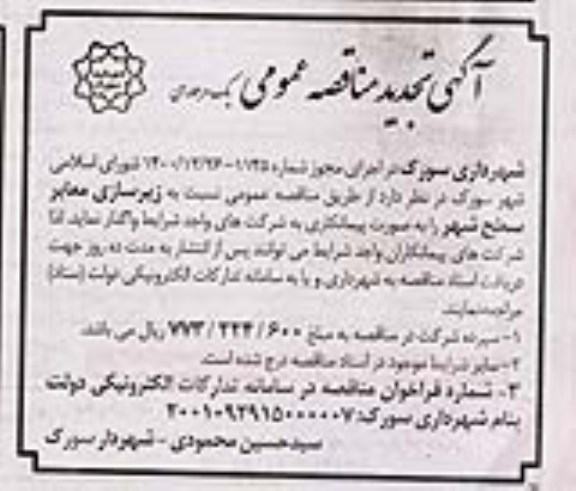 آگهی تجدید مناقصه عمومی یک مرحله‌ای
شهرداری سورک در اجرای مجوز شماره ۱۱۲۵-۱۴۰۰/۱۲/۲۶ شورای اسلامی
شهر سورک در نظر دارد از طریق مناقصه عمومی نسبت به زیرسازی معابر
سطح شهر را به صورت پیمانکاری به شرکت های واجد شرایط واگذار نماید. لذا
شرکت های پیمانکاران واجد شرایط می توانند پس از انتشار به مدت ده روز جهت
دریافت اسناد مناقصه به شهرداری و یا به سامانه تدارکات الکترونیکی دولت (ستاد)
مراجعه نمایند.
۱- سپرده شرکت در مناقصه به مبلغ ۷۷۳/۲۲۴/۶۰۰ ریال می باشد.
۲- سایر شرایط موجود در اسناد مناقصه درج شده است.
۳- شماره فراخوان مناقصه در سامانه تدارکات الکترونیکی دولت
بنام شهرداری سورک: ۲۰۰۱۰۹۲۹۱۵۰۰۰۰۰۷
سیدحسین محمودی - شهردار سورک